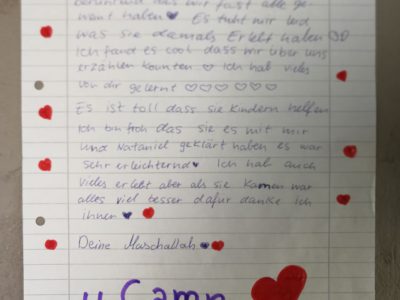 berührend das wir fast alle ge-
weint haben ♥ Es tuht mir leid
was sie damals Erlebt haben ♡♡
Ich fand es cool dass wir über uns
erzählen konnten ♡ Ich hab vieles
von dir gelernt ♡♡♡♡♡♡
Es ist toll dass sie Kindern helfen
Ich bin froh das sie es mit mir
und Nataniel geklärt haben es war
sehr erleichternd ♥ Ich hab auch
vieles erlebt aber als sie Kamen war
alles viel besser dafür danke ich
ihnen ♥ ♥
Deine Marschallah ♥♥
Camp